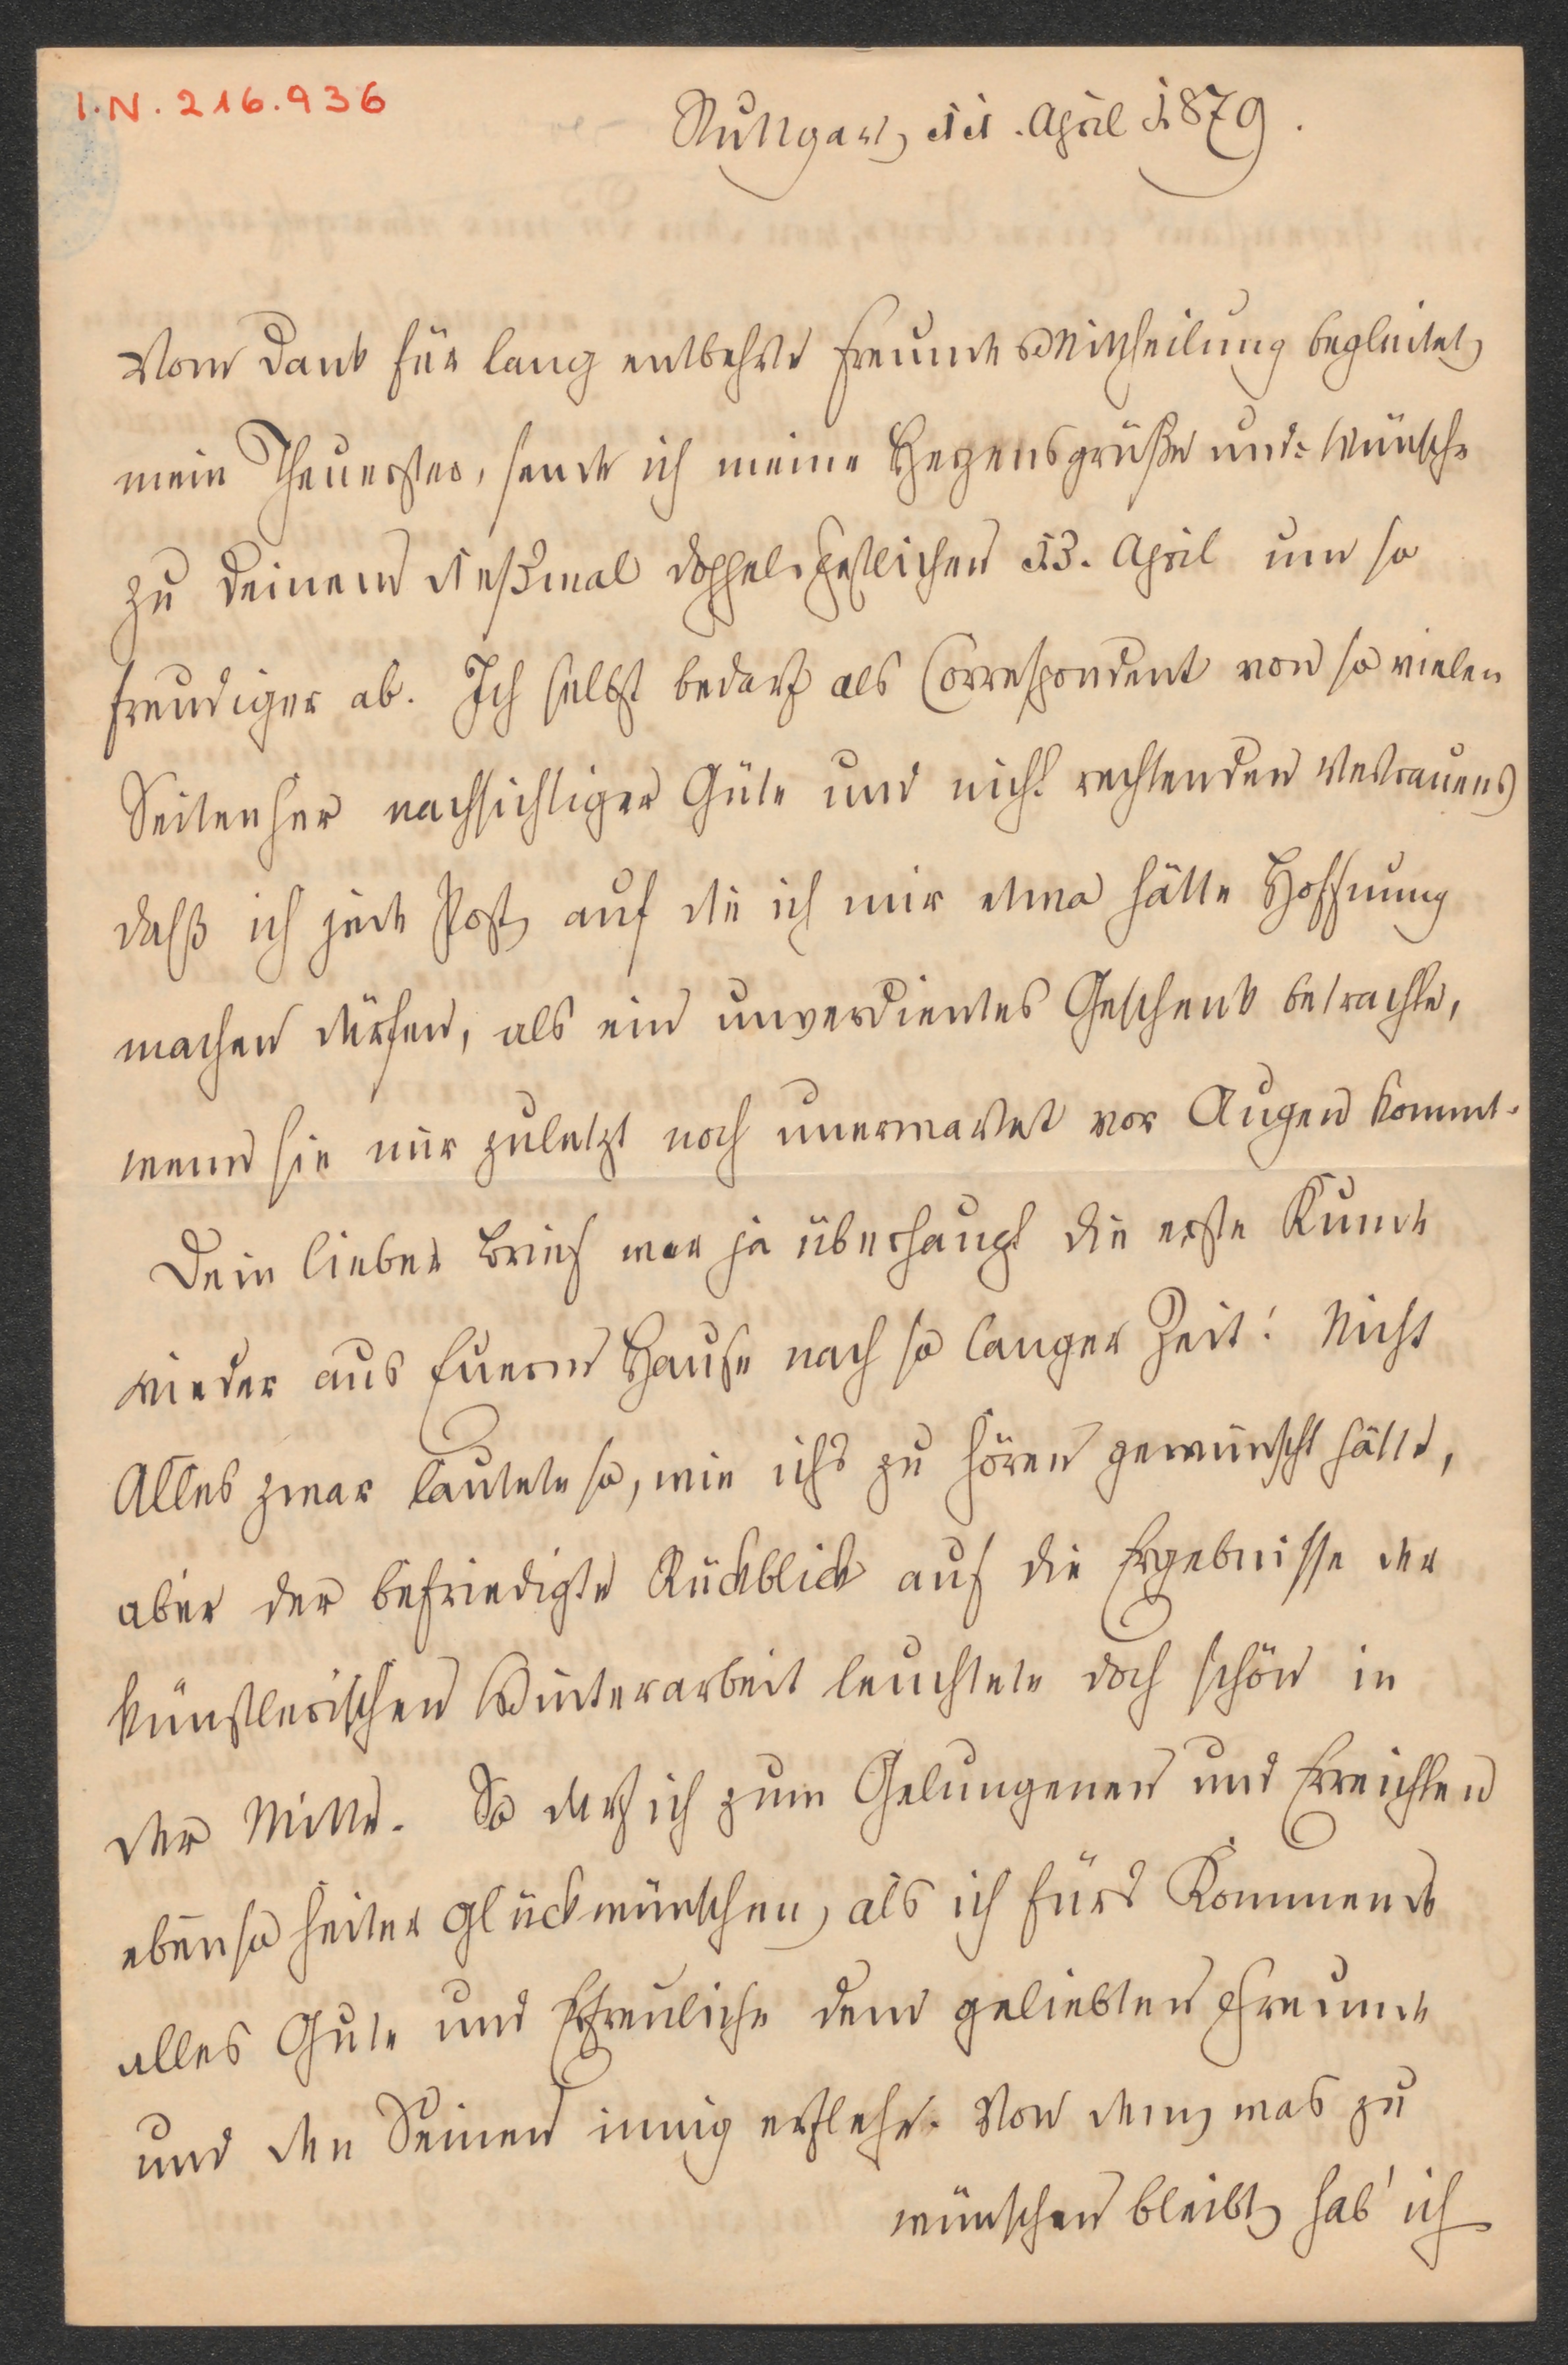 I.N. 216.936
Stuttgart, 11. April 1879.
Vom Dank für lang entbehrte Freundes-Mittheilung begleitet,
mein Theuerster, sende ich meine Herzensgrüße und -Wünsche
zu Deinem dießmal doppelt festlichen 13. April um so
freudiger ab. Ich selbst bedarf als Correspondent von so vielen
Seiten her nachsichtiger Güte und nicht rechtenden Vertrauens
daß ich jede Post, auf die ich mir etwa hätte Hoffnung
machen dürfen, als ein unverdientes Geschenk betrachte,
wenn sie mir zuletzt noch unerwartet vor Augen kommt.
Dein lieber Brief war ja überhaupt die erste Kunde
wieder aus Euerm Hause nach so langer Zeit! Nicht
Alles zwar lautete so, wie ich's zu hören gewünscht hätte,
aber der befriedigte Rückblick auf die Ergebnisse der
künstlerischen Winterarbeit leuchtete doch schön in
der Mitte. So darf ich zum Gelungenen und Erreichten
ebenso heiter glückwünschen, als ich fürs Kommende
alles Gute und Erfreuliche dem geliebten Freunde
und den Seinen innig erflehe. Von dem, was zu
wünschen bleibt, hab' ich